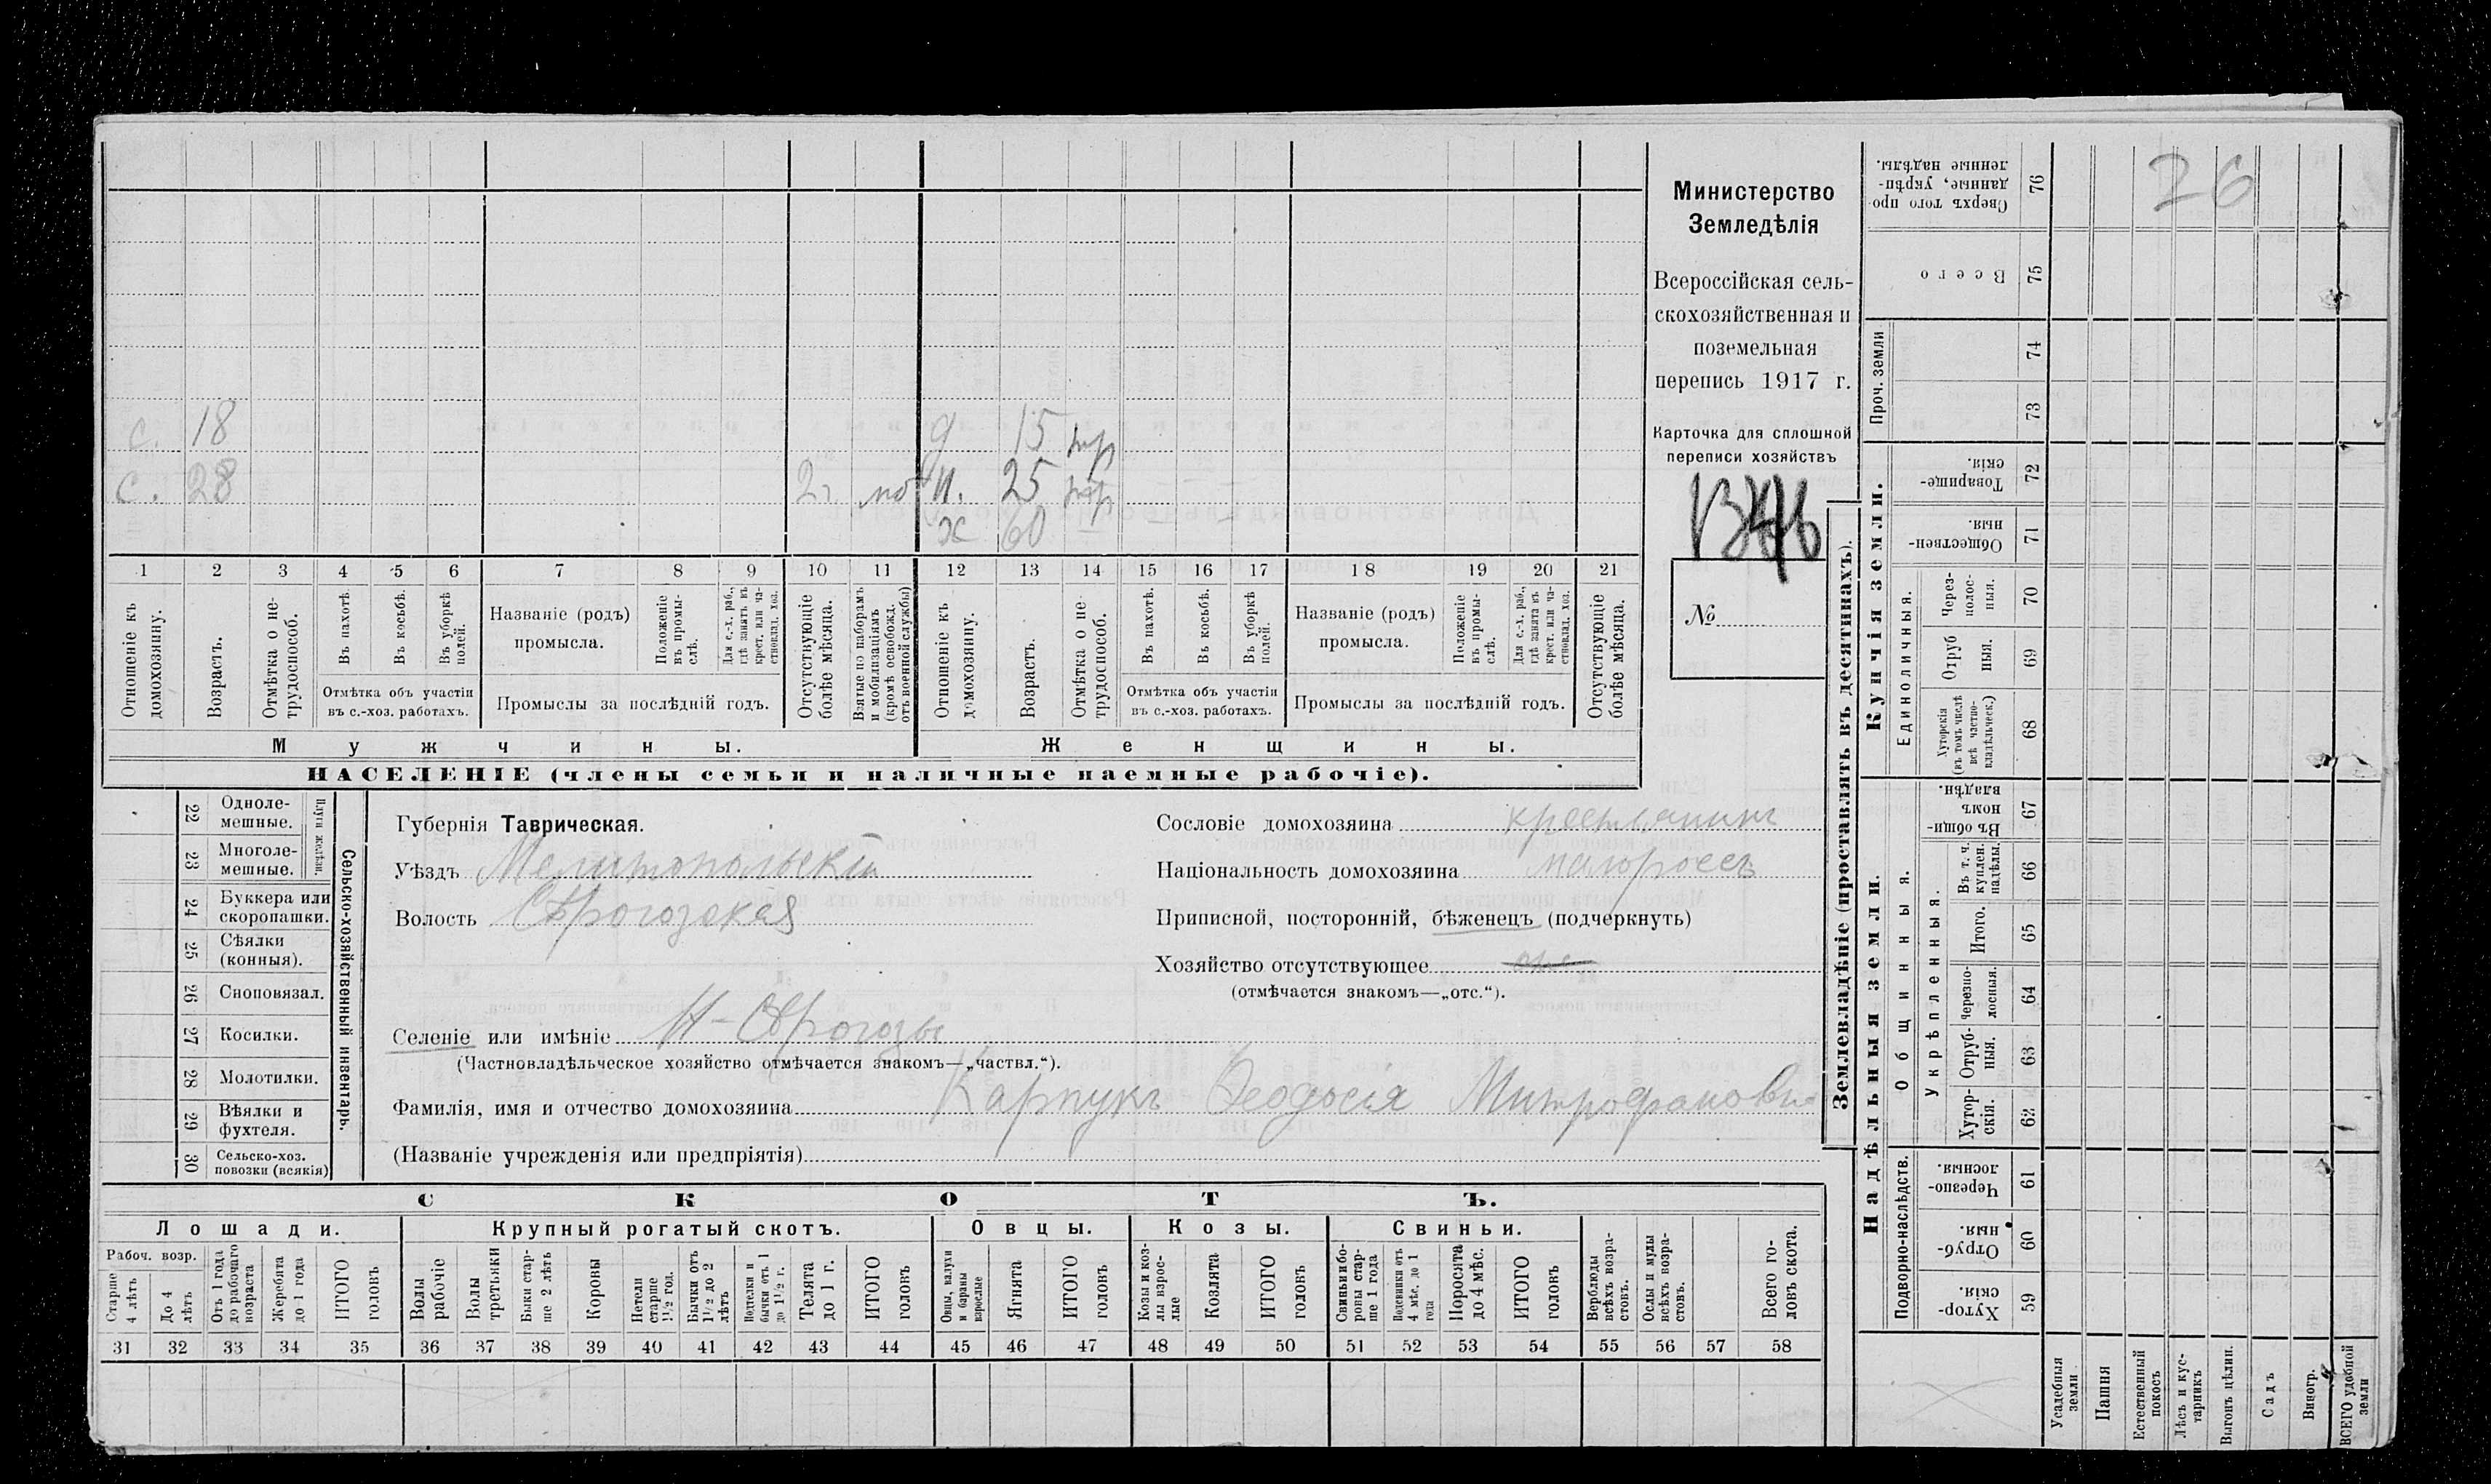 с. 18
д 15 тр
с. 28 2 г. моб
н. 25 тр
х 60 —
1 2 3 4 5 6 7 8 9 10 11 12 13 14 15 16 17 18 19 20 21
Отношеніе къ домохозяину.
Возрастъ.
Отмѣтка о нетрудоспособ.
Въ пахотѣ.
Въ косьбѣ.
Въ уборкѣ полей.
Отмѣтка объ участіи
въ с.-хоз. работахъ.
Названіе (родъ)
промысла.
Положеніе въ промыслѣ.
Для с.-х. раб., гдѣ занятъ въ крест. или частновлад. хоз.
Промыслы за послѣдній годъ.
Отсутствующіе болѣе мѣсяца.
Взятые по наборамъ и мобилизаціямъ (кромѣ освобожд. отъ военной службы)
Отношеніе къ домохозяину.
Возрастъ.
Отмѣтка о нетрудоспособ.
Въ пахотѣ.
Въ косьбѣ.
Въ уборкѣ полей.
Отмѣтка объ участіи
въ с.-хоз. работахъ.
Названіе (родъ)
промысла.
Положеніе въ промыслѣ.
Для с.-х. раб., гдѣ занятъ въ крест. или частновлад. хоз.
Промыслы за послѣдній годъ.
Отсутствующіе болѣе мѣсяца.
Мужчины.
Женщины.
НАСЕЛЕНІЕ (члены семьи и наличные наемные рабочіе).
Министерство
Земледѣлія
Всероссійская сель-
скохозяйственная и
поземельная
перепись 1917 г.
Карточка для сплошной
переписи хозяйствъ
№
22 Одноле-
мешные.
23 Многоле-
мешные.
Плуги желѣзн.
24 Буккера или
скоропашки.
25 Сѣялки
(конныя).
26 Сноповязал.
27 Косилки.
28 Молотилки.
29 Вѣялки и
фухтеля.
30 Сельско-хоз.
повозки (всякія)
Сельско-хозяйственный инвентарь.
Губернія Таврическая.
Уѣздъ Мелитопольскій
Волость Сѣрогозская
Селеніе или имѣніе Н-Сѣрогозы
(Частновладѣльческое хозяйство отмѣчается знакомъ—„частвл.“).
Фамилія, имя и отчество домохозяина Карпукъ Феодосія Митрофанови
(Названіе учрежденія или предпріятія)
Сословіе домохозяина крестьянинъ
Національность домохозяина малороссъ
Приписной, посторонній, бѣженецъ (подчеркнуть)
Хозяйство отсутствующее
(отмѣчается знакомъ—„отс.“).
СКОТЪ.
Лошади. Крупный рогатый скотъ. Овцы. Козы. Свиньи.
Рабоч. возр.
Старше 4 лѣтъ
До 4 лѣтъ
Отъ 1 года до рабочаго возраста
Жеребята до 1 года
ИТОГО головъ
Волы рабочіе
Волы третьяки
Быки старше 2 лѣтъ
Коровы
Нетели старше 1½ год.
Бычки отъ 1½ до 2 лѣтъ
Подтелки и бычки отъ 1 до 1½ г.
Телята до 1 г.
ИТОГО головъ
Овцы, валухи и бараны взрослые
Ягнята
ИТОГО головъ
Козы и козлы взрослые
Козлята
ИТОГО головъ
Свиньи и боровы старше 1 года
Подсвинки отъ 4 мѣс. до 1 года
Поросята до 4 мѣс.
ИТОГО головъ
Верблюды всѣхъ возрастовъ.
Ослы и мулы всѣхъ возрастовъ.
Всего головъ скота.
31 32 33 34 35 36 37 38 39 40 41 42 43 44 45 46 47 48 49 50 51 52 53 54 55 56 57 58
Землевладѣніе (проставлять въ десятинахъ).
26
Сверхъ того проданные, укрѣпленные надѣлы. 76
Всего 75
Проч. земли
74
73
Купчія земли.
Товарищескія. 72
Общественныя. 71
Единоличныя.
Черезполосныя. 70
Отрубныя. 69
Хуторскія (въ томъ числѣ всѣ частновладѣльческ.) 68
Надѣльныя земли.
Общинныя.
Въ общинномъ владѣн. 67
Укрѣпленныя.
Въ т. ч. куплен. надѣлы. 66
Итого. 65
Черезполосныя. 64
Отрубныя. 63
Хуторскія. 62
Подворно-наслѣдств.
Черезполосныя. 61
Отрубныя. 60
Хуторскія. 59
Усадебныя земли
Пашня
Естественный покосъ
Лѣсъ и кустарникъ
Выгонъ цѣлин.
Садъ
Виногр.
ВСЕГО удобной земли